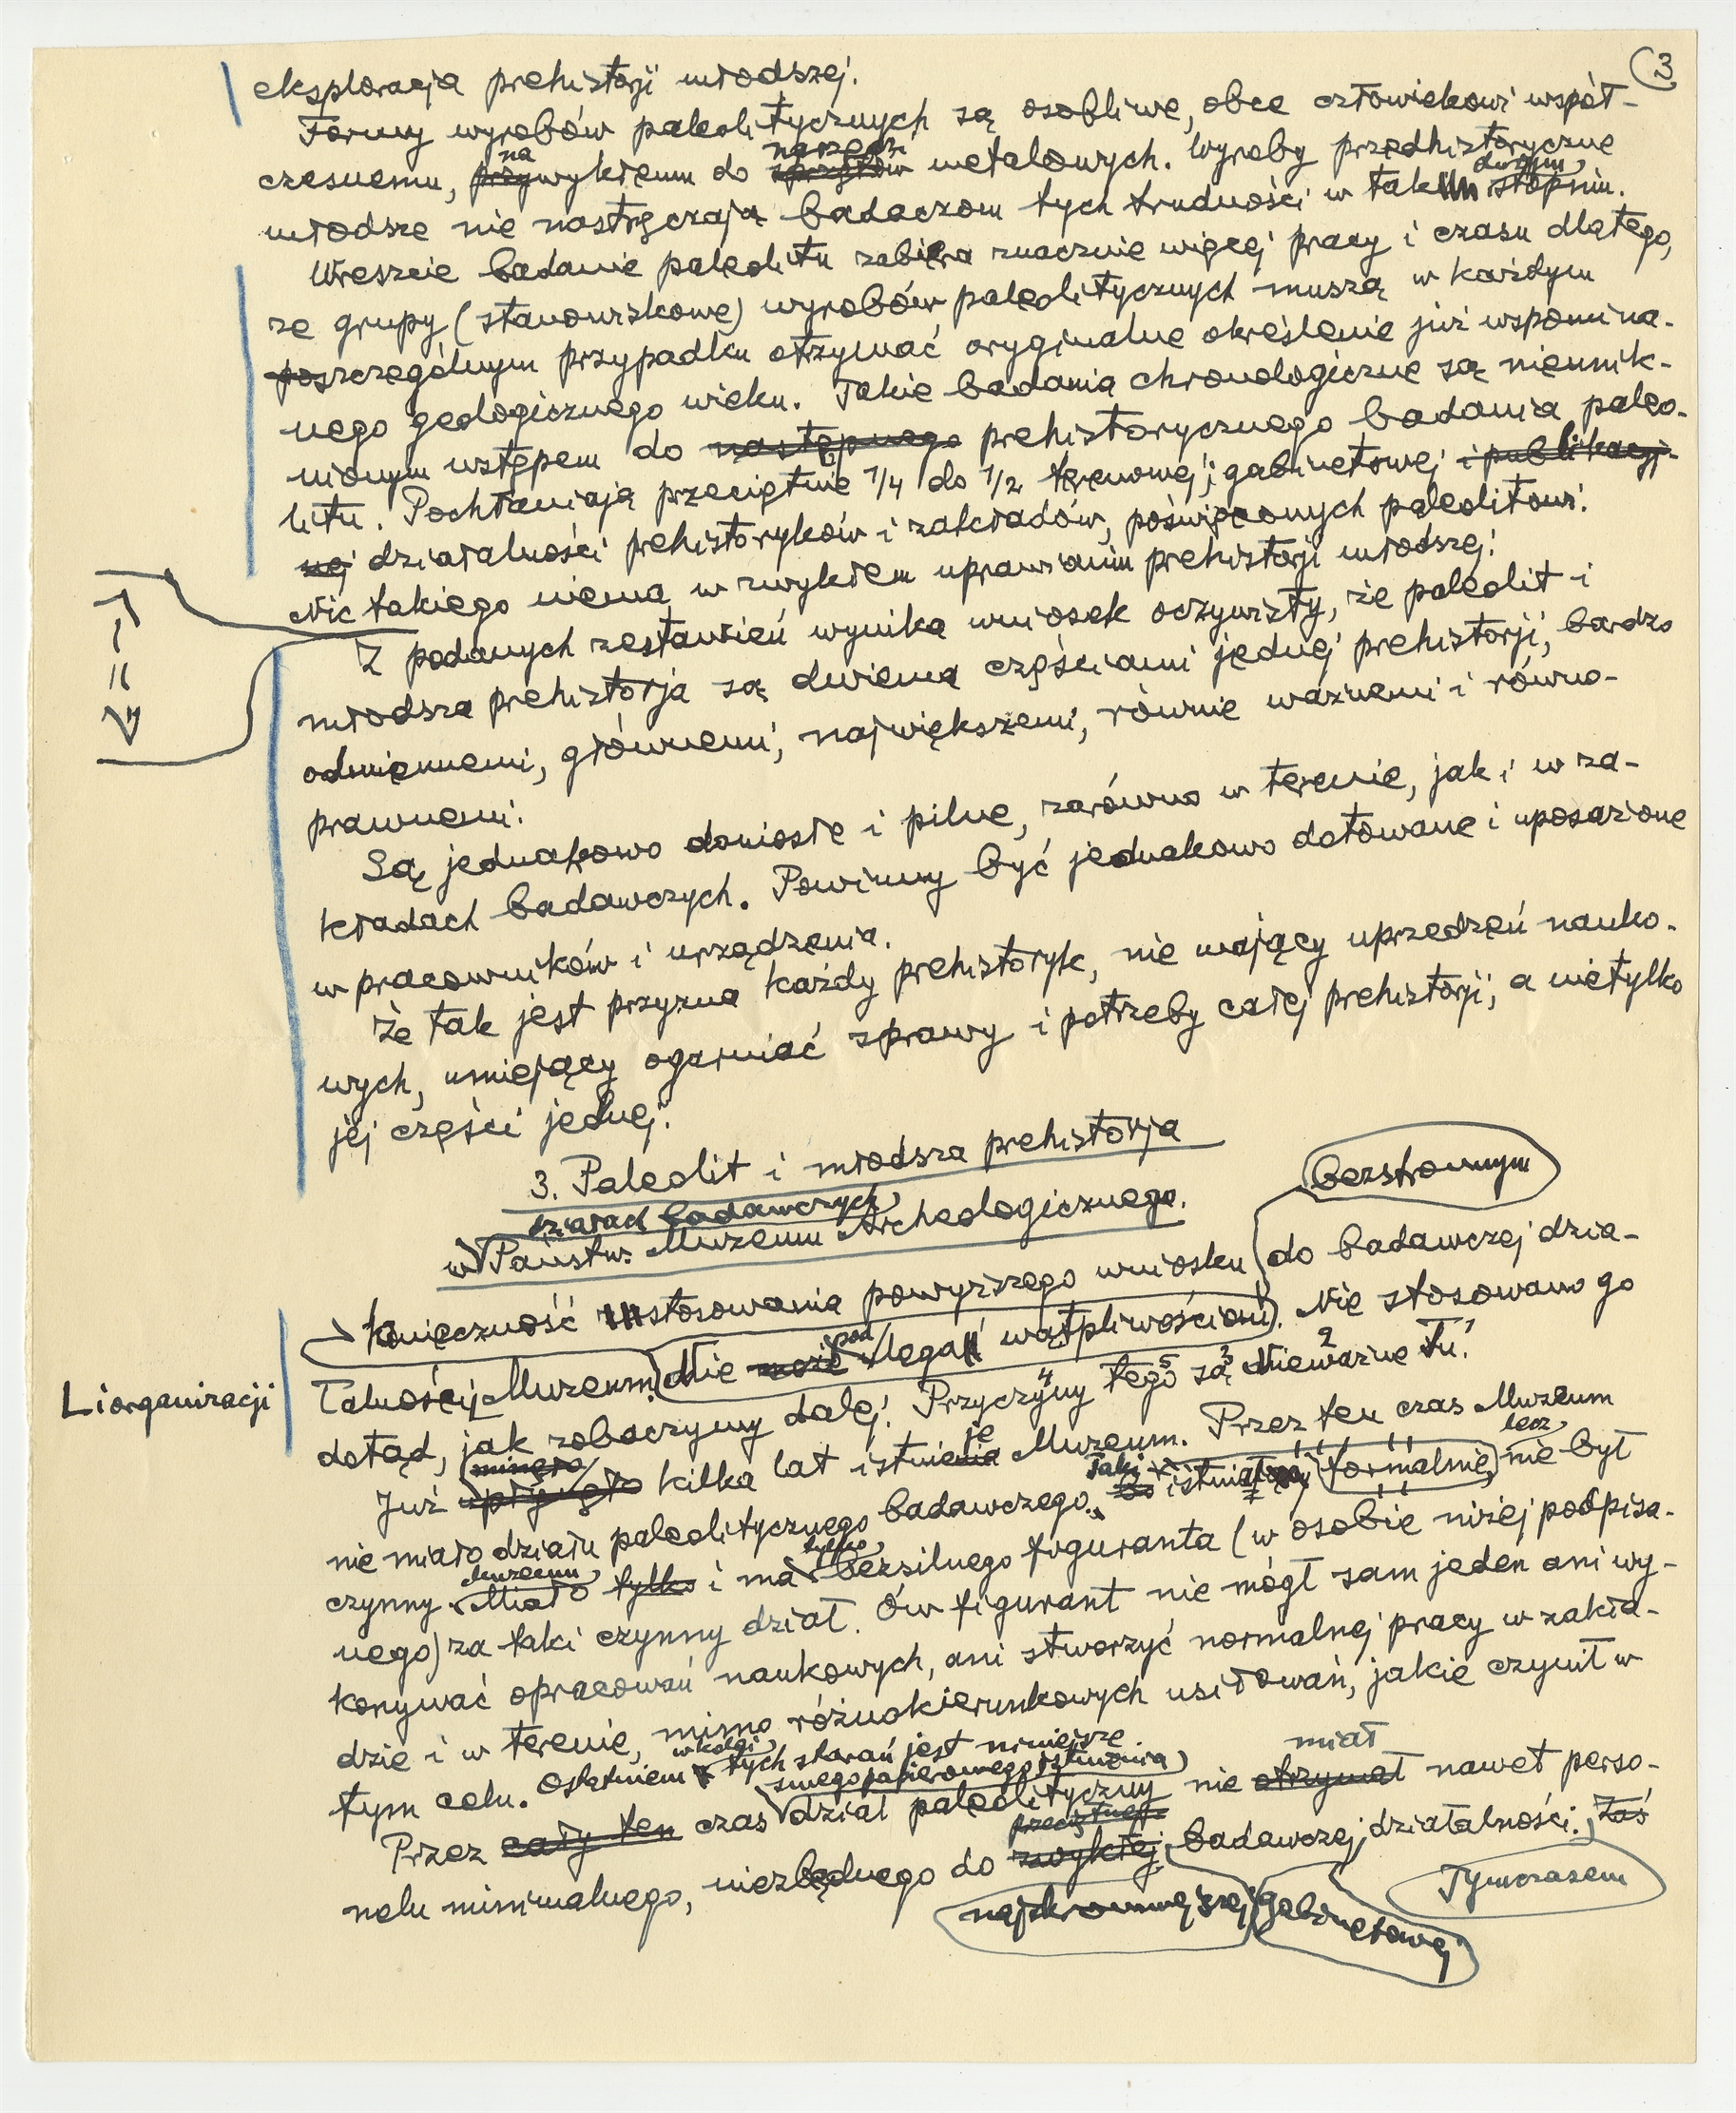 3
eksploracja prehistorji młodszej.
Formy wyrobów paleolitycznych są osobliwe, obce człowiekowi współ-
na narzędzi
czesnemu, przywykłemu do sprzętów metalowych. Wyroby przedhistoryczne
dużym
młodsze nie nastręczają badaczom tych trudności w tak stopniu.
Wreszcie badanie paleolitu zabiera znacznie więcej pracy i czasu dlatego,
że grupy (stanowiskowe) wyrobów paleolitycznych muszą w każdym
poszczególnym przypadku otrzymać oryginalne określenie już wspomina-
nego geologicznego wieku. Takie badania chronologiczne są nieunik-
nionym wstępem do następnego prehistorycznego badania paleo-
litu. Pochłaniają przeciętnie 1/4 do 1/2 terenowej i gabinetowej i publikacyj-
nej działalności prehistoryków i zakładów, poświęconych paleolitowi.
Nic takiego niema w zwykłem uprawianiu prehistorji młodszej.
Z podanych zestawień wynika wniosek oczywisty, że paleolit i
młodsza prehistorja są dwiema częściami jednej prehistorji, bardzo
odmiennemi, głównemi, największemi, równie ważnemi i równo-
prawnemi.
Są jednakowo doniosłe i pilne, zarówno w terenie, jak i w za-
kładach badawczych. Powinny być jednakowo dotowane i uposażone
w pracowników i urządzenia.
Że tak jest przyzna każdy prehistoryk, nie mający uprzedzeń nauko-
wych, umiejący ogarniać sprawy i potrzeby całej prehistorji, a nietylko
jej części jednej.
3. Paleolit i młodsza prehistorja
działach badawczych
w Państw. Muzeum Archeologicznego.
bezstronnym
Konieczność stosowania powyższego wniosku do badawczej dzia-
i organizacji
łalności Muzeum. Nie może podlegać wątpliwościom. Nie stosowano go
dotąd, jak zobaczymy dalej. Przyczyny 4 tego 5 są 3 nieważne 2 tu. 1
minęło je
Już upłynęło kilka lat istnienia Muzeum. Przez ten czas Muzeum
taki lecz
nie miało działu paleolitycznego badawczego. istniał formalnie, nie był
Muzeum tylko
czynny. Miało tylko i ma bezsilnego figuranta (w osobie niżej podpisa-
nego) za taki czynny dział. Ów figurant nie mógł sam jeden ani wy-
konywać opracowań naukowych, ani stworzyć normalnej pracy w zakła-
dzie i w terenie, mimo różnokierunkowych usiłowań, jakie czynił w
tym celu. Ostatniem w kolei tych starań jest niniejsze
swego papierowego istnienia miał
Przez cały ten czas dział paleolityczny nie otrzymał nawet perso-
nelu minimalnego, niezbędnego do zwykłej badawczej działalności. Zaś
najskromniejszej gabinetowej
Tymczasem